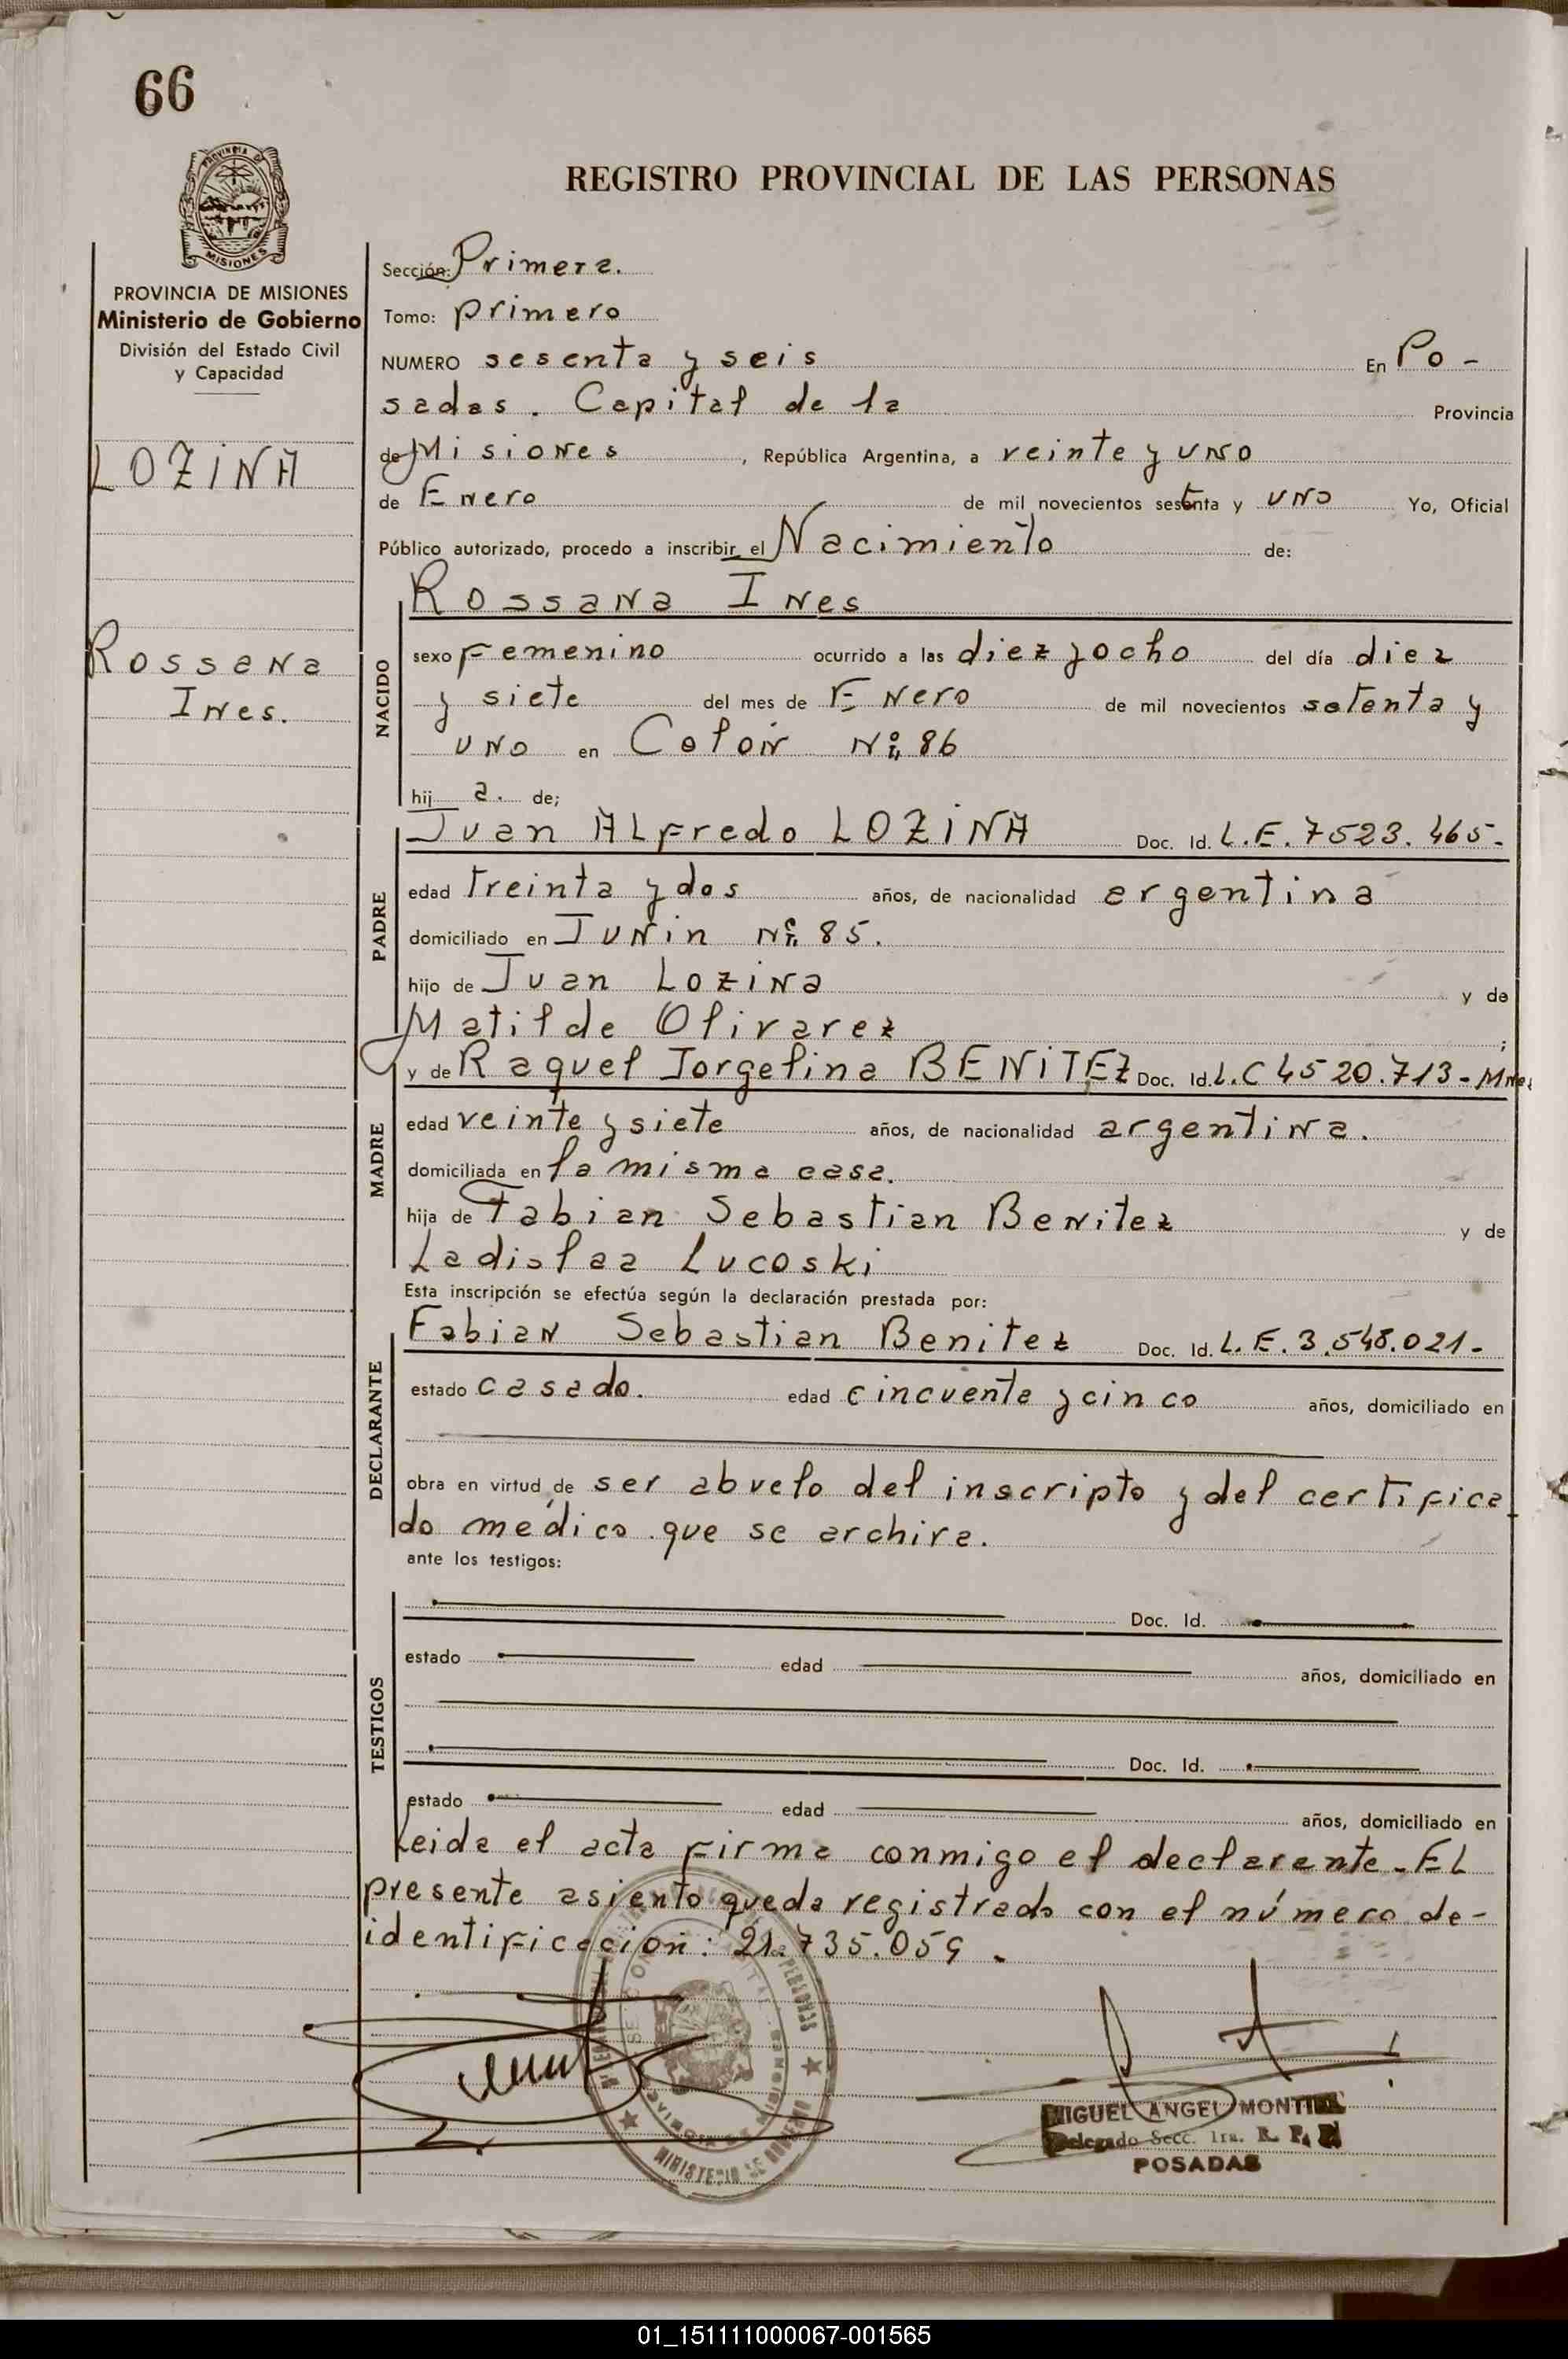 66
REGISTRO PROVINCIAL DE LAS PERSONAS
PROVINCIA DE
MISIONES
PROVINCIA DE MISIONES
Ministerio de Gobierno
División del Estado Civil
y Capacidad
LOZINA
Rossana
Ines.
Sección: Primera.
Tomo: primero
NUMERO sesenta y seis En Po-
sadas. Capital de la Provincia
de Misiones, República Argentina, a veinte y uno
de Enero de mil novecientos setenta y uno Yo, Oficial
Público autorizado, procedo a inscribir el Nacimiento de:
NACIDO
Rossana Ines
sexo Femenino ocurrido a las diez y ocho del día diez
y siete del mes de Enero de mil novecientos setenta y
uno en Colón Nº 86
hij a. de;
PADRE
Juan ALFredo LOZINA Doc. Id. L.E. 7523.465-
edad treinta y dos años, de nacionalidad argentina
domiciliado en Junin Nº 85.
hijo de Juan Lozina y de
Matilde Olivarez ;
MADRE
y de Raquel Jorgelina BENITEZ Doc. Id. L.C 4520.713-Mnes
edad veinte y siete años, de nacionalidad argentina.
domiciliada en la misma casa.
hija de Fabian Sebastian Benitez y de
Ladislaa Lucoski
Esta inscripción se efectúa según la declaración prestada por:
DECLARANTE
Fabian Sebastian Benitez Doc. Id. L.E. 3.548.021-
estado casado. edad cincuenta y cinco años, domiciliado en
obra en virtud de ser abuelo del inscripto y del certifica
do médico que se archiva.
ante los testigos:
TESTIGOS
Doc. Id.
estado edad años, domiciliado en
Doc. Id.
estado edad años, domiciliado en
Leida el acta firma conmigo el declarante. EL
presente asiento queda registrado con el número de-
identificación: 21.735.059.
MINISTERIO DE GOBIERNO
MIGUEL ANGEL MONTIEL
Delegado Secc. 1ra. R. P. P.
POSADAS
01_151111000067-001565